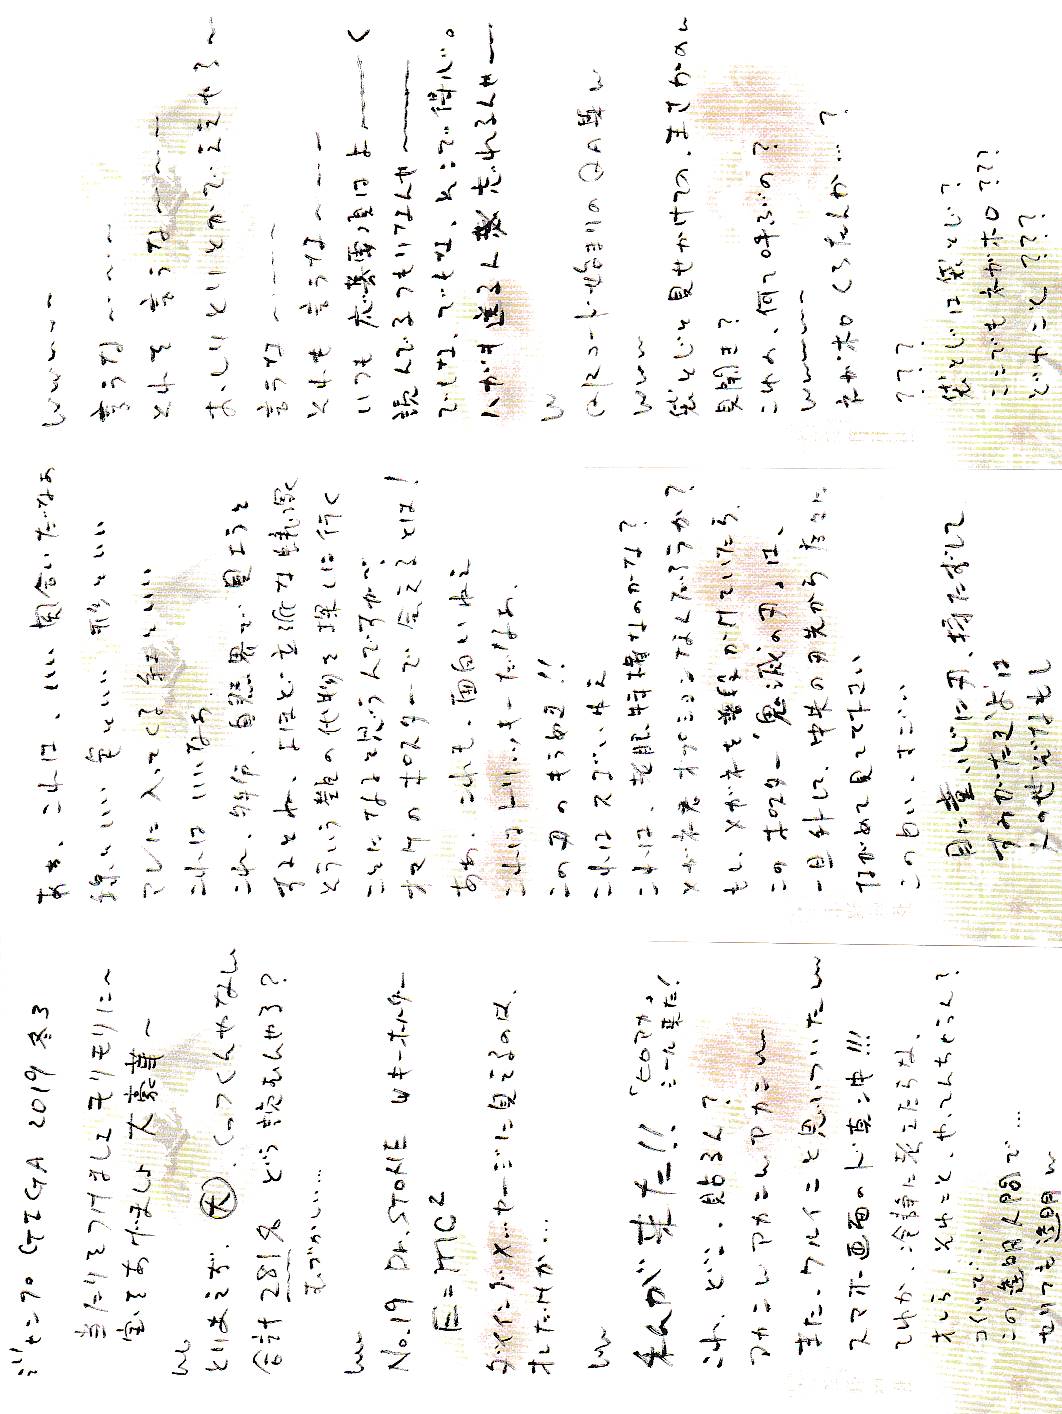 ジャンプ GIGA 2019 冬3
当たりをつけまして モリモリに〜
宝をあげましょ 大豪華〜
www
とりあえず、大、くっつくんやなしw
合計 281名 どう読むんやろ?
むづかしい…
www
No.19 Dr.STONE Wキーホルダー
E=mc²
ダイイングメッセージに見えるのは、
オレだけか…
www
私が来た!!「ヒロアカ」
シール来た!
これ、どこ、貼るん?
アカンしアカンしアカンw
また、ワルイこと思いついたw
スマホ画面のド真ン中!!!
てゆか、冷静に考えたらな、
オレら、そのこと、やってんちゃうん?
コイツで…
この透明人間で…
セリフも透明w
あぁ、これは、いい具合いだなぁ
線といい 色といい 形といい
マレに入ってくる 紅といい
これは いいなぁ
これ、多分、自然界で見ようと
するとね、よほど立派な蟻塚
そういう類の代物を探しに行く
ことになると思うんですが〜
オマケのポスターで会えるとは!
ああ、これも、面白いねえ
これはトリッキーだなあ、
この刃のきらめき!!
これはスゴいねえ
これは、老眼特権なのかな?
メガネ君オプションなんだろうか?
もし、メガネを普段かけていたら、
このポスター「鬼滅の刃」は、
一旦外して、中央の刃先から 左右に
ながめて見て下さい
この白い、すごい
目に童 いじに刃、持たずして
すみがたき よ は
人のせぞなもし
wwwww
言うな〜〜〜
それを 言うな〜〜〜
まっしりとりとかで言えやろ〜
言うな〜〜〜
それも 言うな〜〜〜
いつも 応募要項は よ〜〜〜く
読んでるつもりなんや〜〜〜
でもな、でもな、そこで得心。
ハガキ送るん 忘れるんや〜
w
QRコード始まりのQA集w
www
袋とじと見せかけての、まさかのw
見開き?
これの、何て呼ぶの?
wwwww
ネガポロくろたんか…?
???
袋とじは袋とじ?
ここでもネガポロ???
どゆこと???